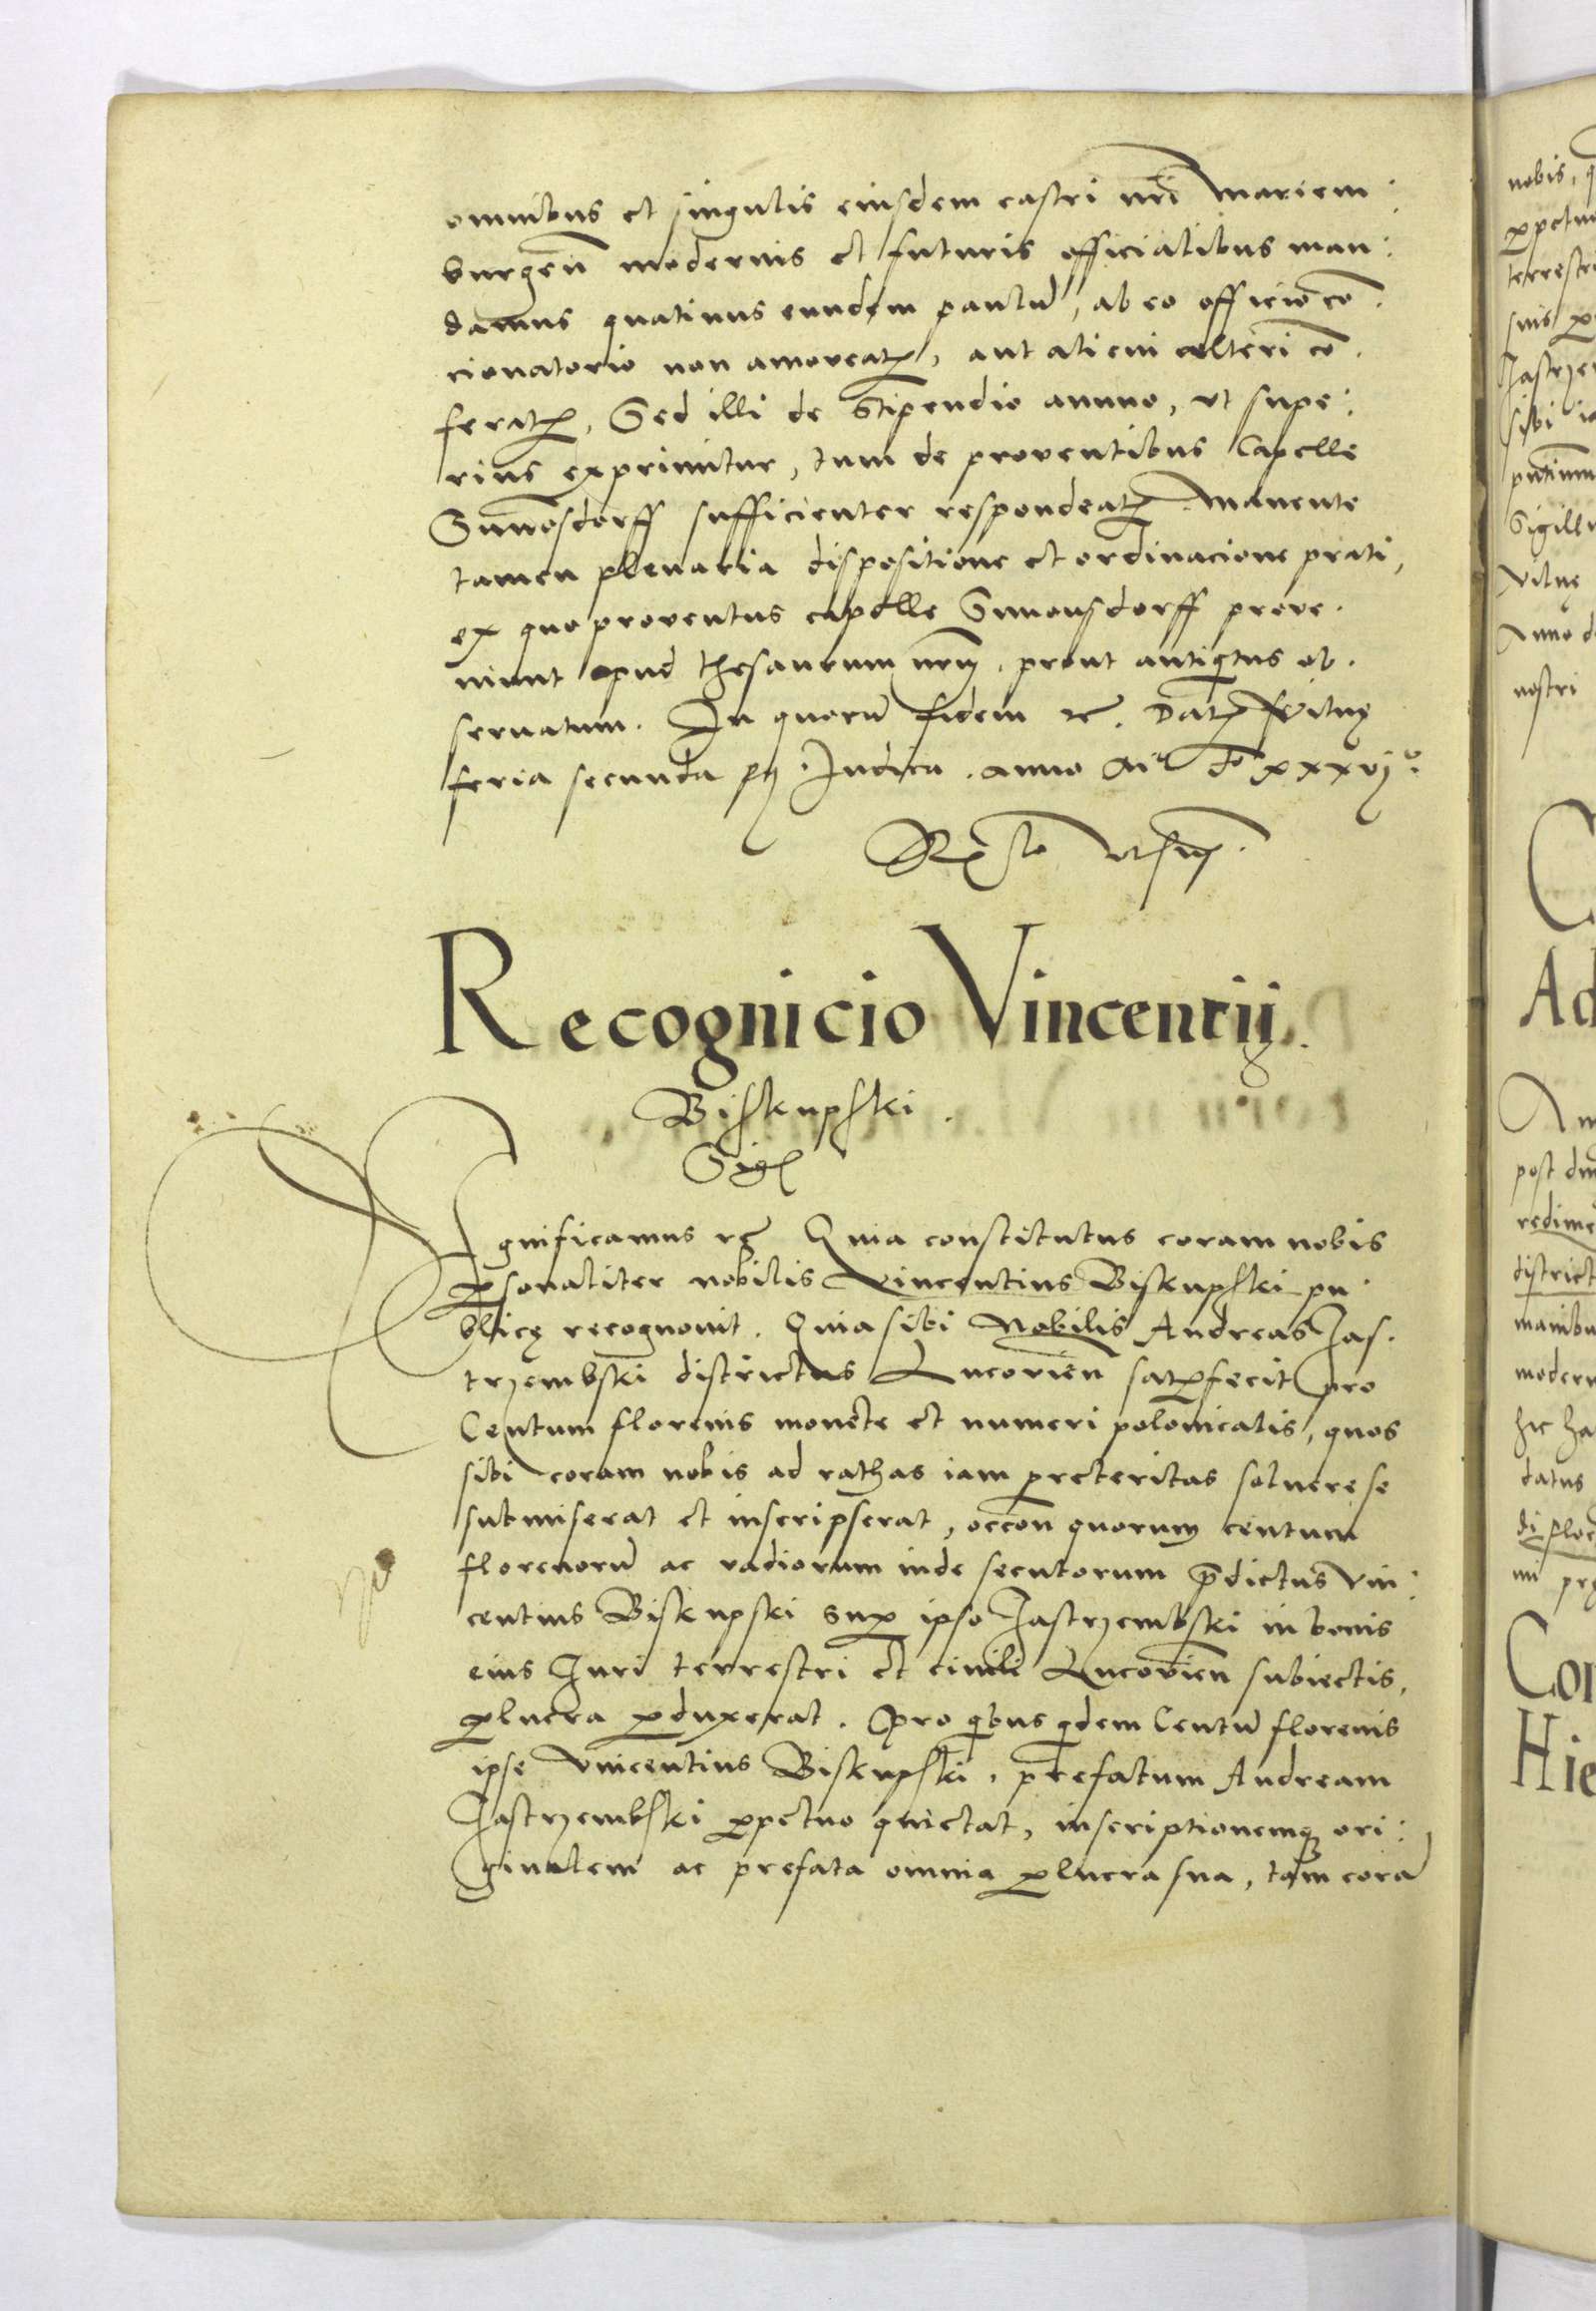 omnibus et singulis eiusdem castri nri mariem:
burgen modernis et futuris officialibus man:
damus quatinus eundem paulu, ab eo officio co
cionatorio non amoveat, aut alicui alteri co
ferat, Sed illi de stipendio annuo, ut supe:
rius exprimitur, tum de proventibus Capelle
Simosdorff sufficienter respondeat, manente
tamen plenaria dispositione et ordinacione prati,
ex quo proventus capelle Simonsdorff prove.
niunt apud thesaurum nrm, prout antiqitus ob.
servatum. In quoru fidem rc. Dat
feria secunda Judica. anno xxxvjo.
Recognicio Vincentij
Biskupski.
Sig
gnificamus rc Quia constitutus coram nobis
psonaliter nobilis Vincentius Biskupski pu
blicę recognovit. Quia sibi Nobilis Andreas Jas.
trzembski districtus Lucovien satfecit pro
Centum florenis monete et numeri polonicalis, quos
sibi coram nobis ad rathas iam preteritas solvere se
submiserat et inscripserat, occon quorum centum
florenoru ac vadiorum inde secutorum pdictus vin:
centius Biskupski sup ipso Jastrzembski in bonis
eius Juri terrestri et civili Lucovien subiectis,
plucra pduxerat. Pro qibus qidem Centu florenis
ipse vincentius Biskupski, prefatum Andream
Jastrzembski ppetuo quietat, inscriptionemq ori:
ginalem ac prefata omnia plucra sua, tam cora
nobis,
ppetu
terrestri
suis
Jastrze
sibi
Sigill
Anno
nostri
Ad
post
redime
district
manibu
modern
datus
Con
Hie